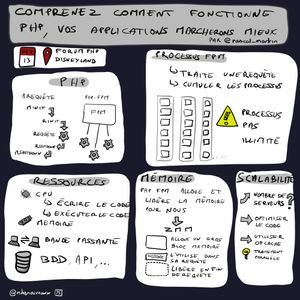 COMPRENEZ COMMENT FONCTIONNE
PHP, VOS APPLICATIONS MARCHERONS MIEUX
PAR @pascal_martin
13
FORUM PHP
DISNEYLAND
PHP
1 REQUÊTE
MINIT
RINIT
REQUÊTE
RSHUTDOWN
MSHUTDOWN
FPM
PROCESSUS FPM
TRAITE UNE REQUÊTE
CUMULER LES PROCESSUS
PROCESSUS
PAS
ILLIMITÉ
RESSOURCES
CPU
ÉCRIRE LE CODE
EXÉCUTER LE CODE
MÉMOIRE
BANDE PASSANTE
BDD, API,...
MÉMOIRE
PHP FPM ALLOUE ET
LIBÈRE LA MÉMOIRE
POUR NOUS
ZMM
ALLOUE UN GROS
BLOC MÉMOIRE
L'UTILISE DANS
SA REQUÊTE
LIBÈRE EN FIN
DE REQUÊTE
SCALABILITÉ
NOMBRE DE
SERVEURS ?
OPTIMISER
LE CODE
UTILISER
OPCACHE
TRAITEMENT
PARALLÈLE